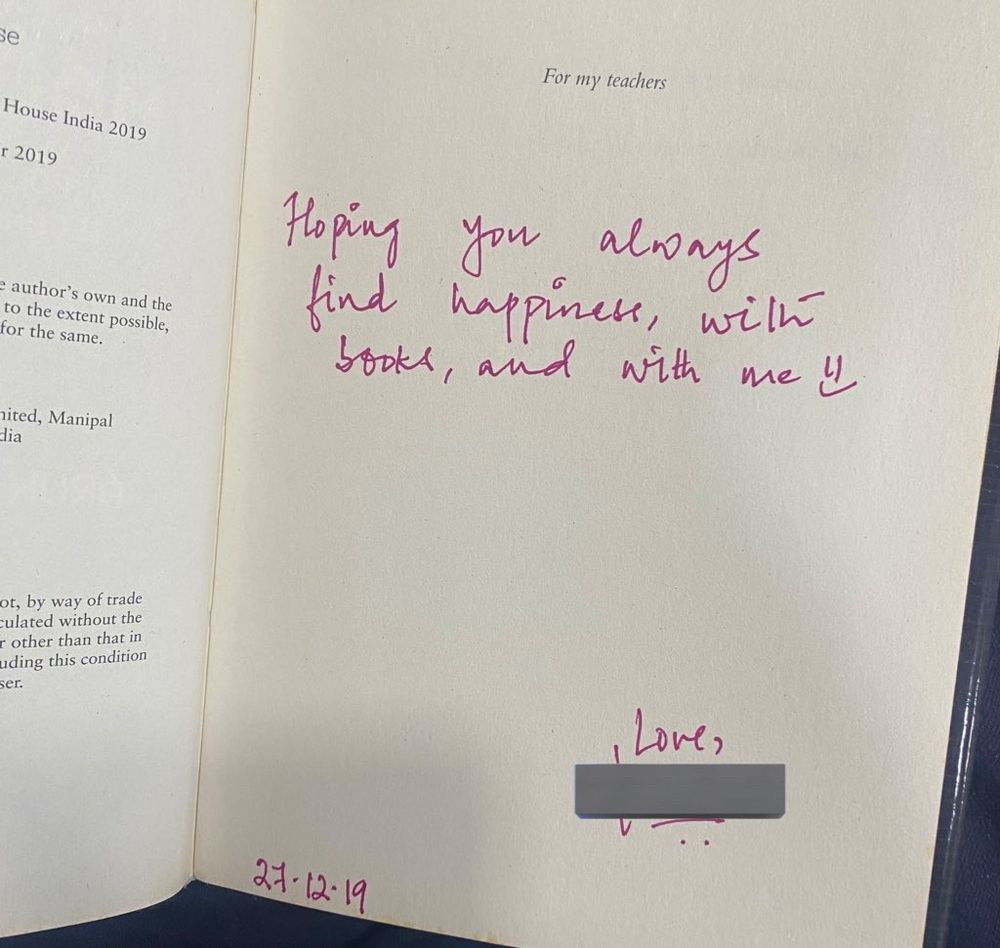 se
House India 2019
r 2019
e author's own and the
to the extent possible,
for the same.
nited, Manipal
dia
ot, by way of trade
culated without the
r other than that in
uding this condition
ser.
For my teachers
Hoping you always
find happiness, with
books, and with me
Love,
27.12.19